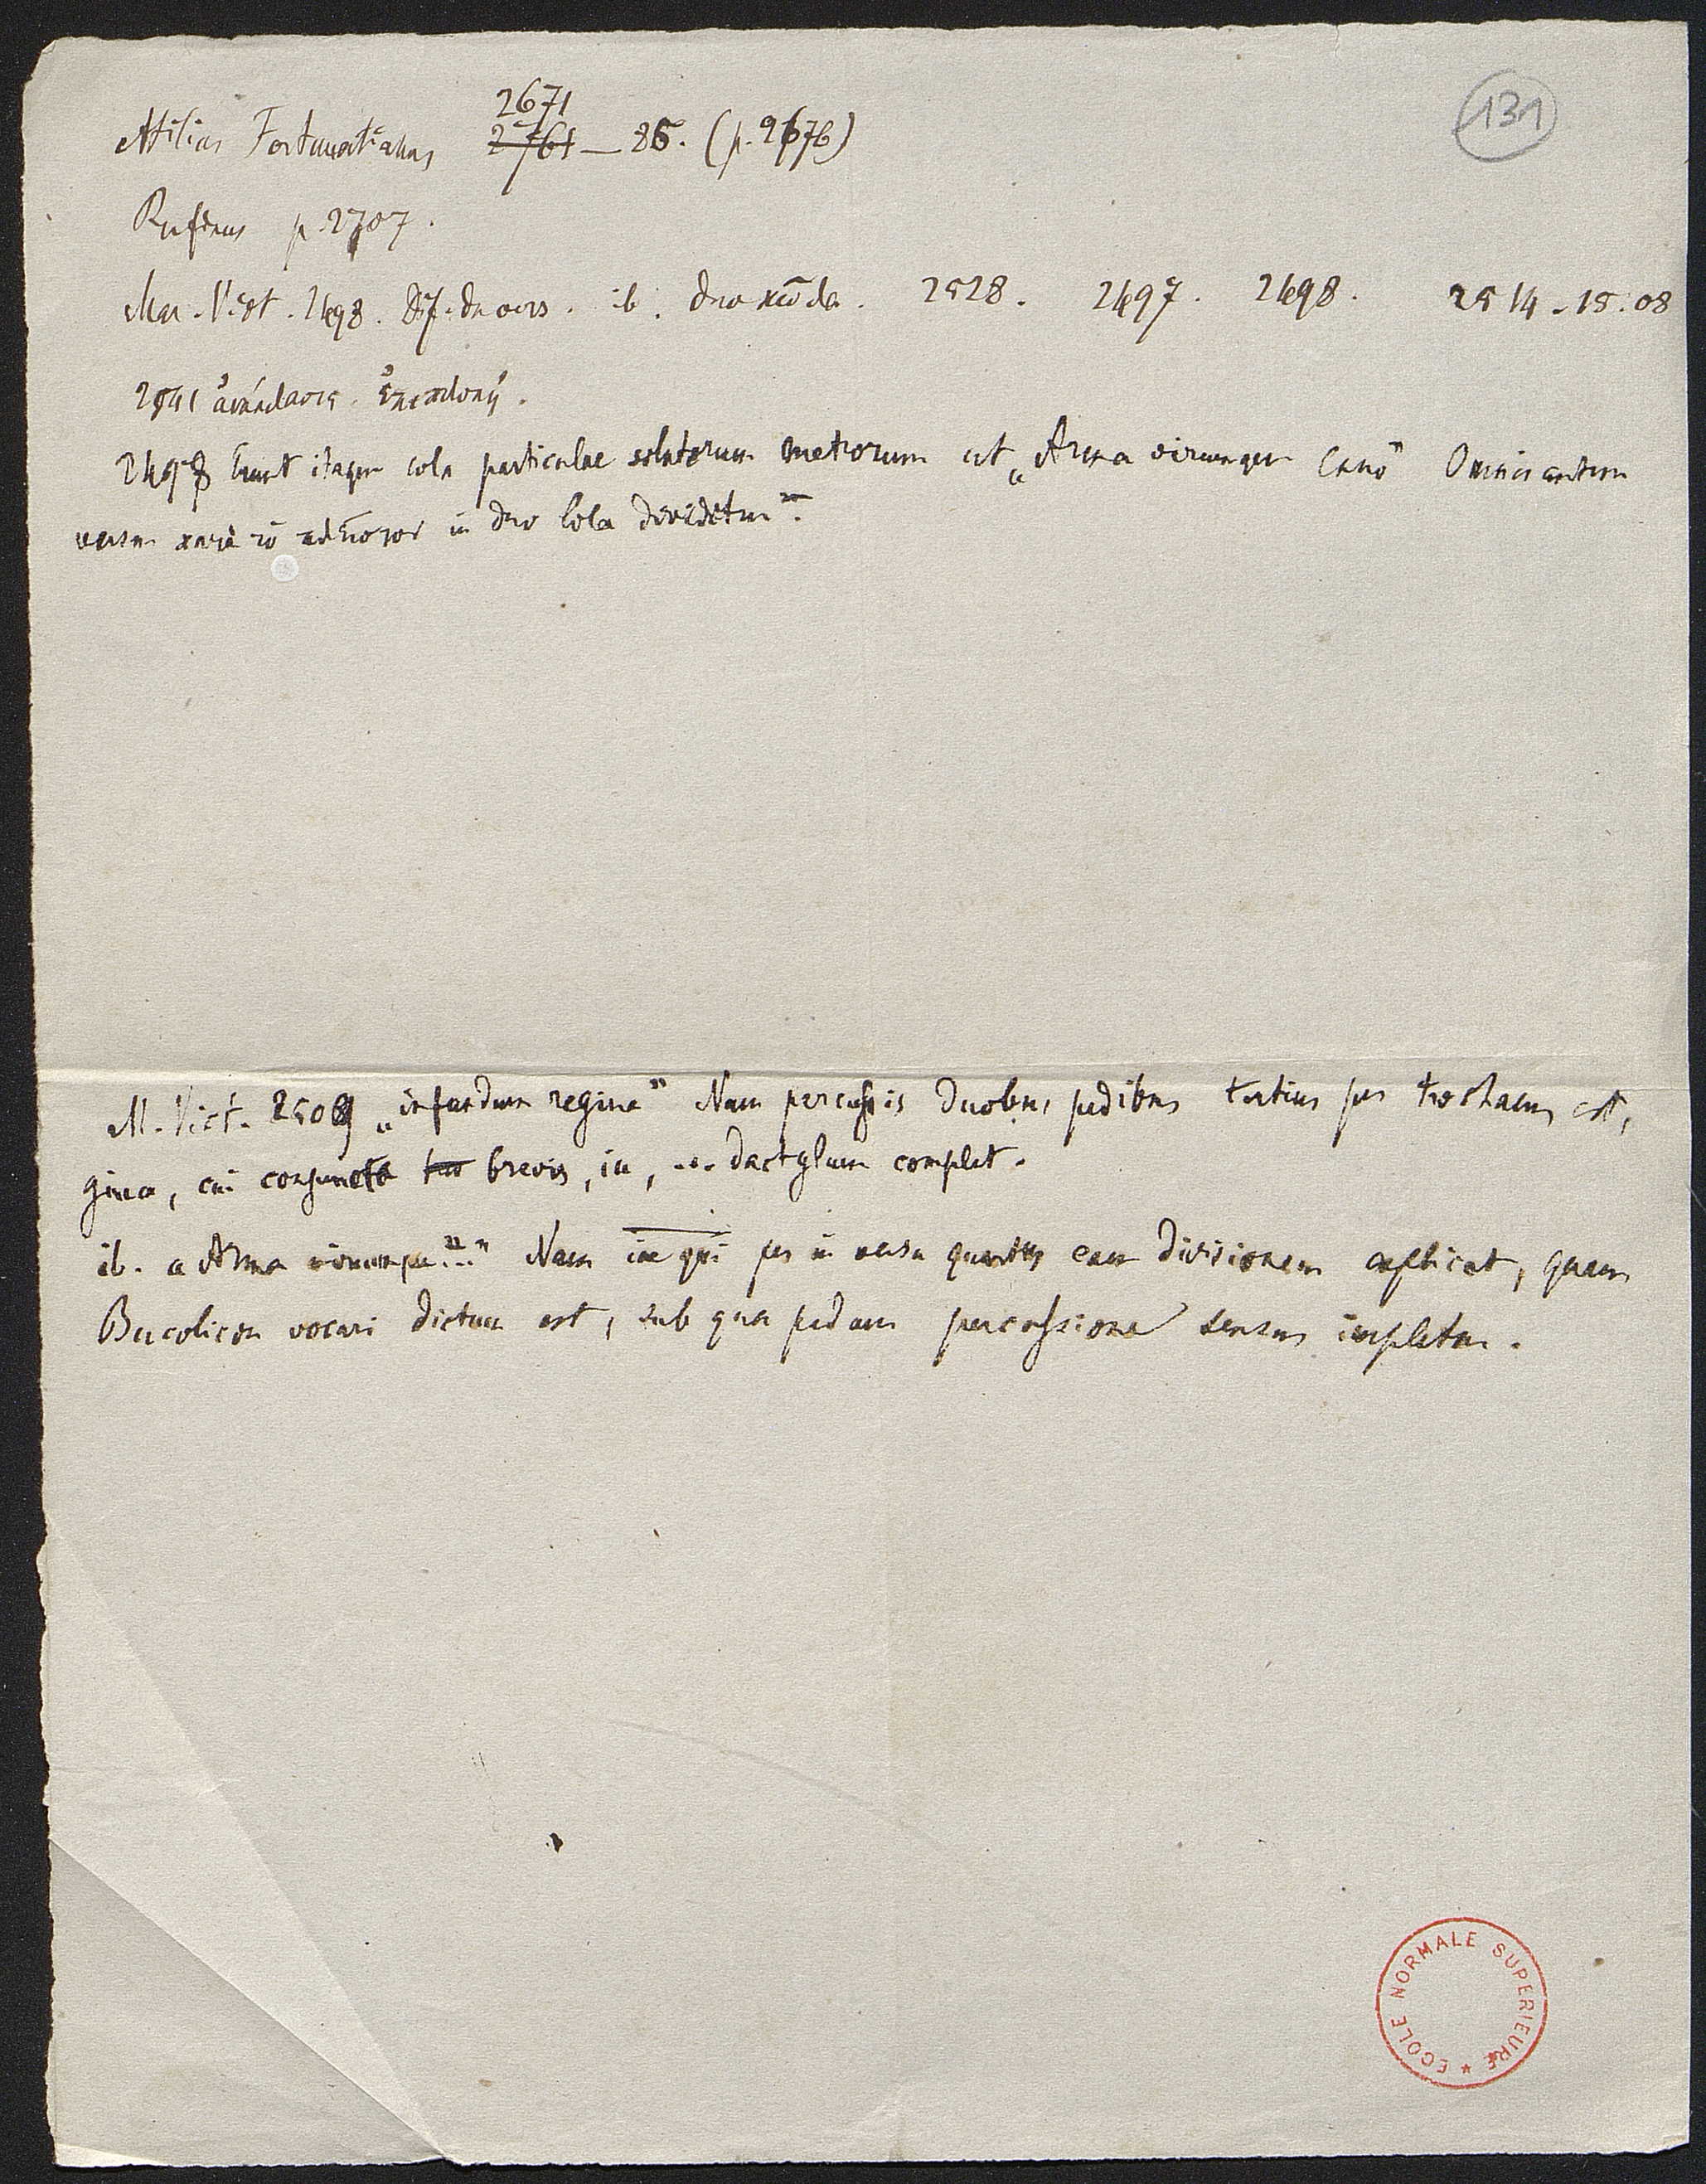 131
2671
Atilius Fortunatianus 2761 — 86. (p. 2676)
Rufinus p. 2707.
Mar. Vict. 2498. ib. duo κῶλα. 2528. 2497. 2498. 2514-15.08
2541 ἀνάκλασις. ἐπιπλοκή.
2498 Erunt itaque cola particulae solutorum metrorum ut „Arma virumque cano” Omnis autem
versus κατὰ τὸ πλεῖστον in duo cola dividitur”.
M. Vict. 2509 „infandum regina” Nam percussis duobus pedibus tertius pes trochaeus est,
gina, cui conjuncta brevis, iu, ... dactylum complet.
ib. a Arma virumque..." Nam pes in versu quartus eam divisionem explicat, quam
Bucolicon vocari dictum est, sub qua pedum percussione sensus impletur.
ECOLE NORMALE SUPERIEURE *